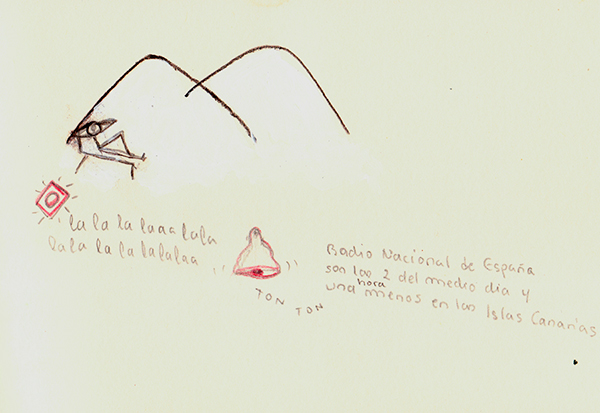 la la la laaa lala
lala la la lalalaa
TON TON
Radio Naciönal de España
son las 2 del medio dia y
una hora menos en las Islas Canarias